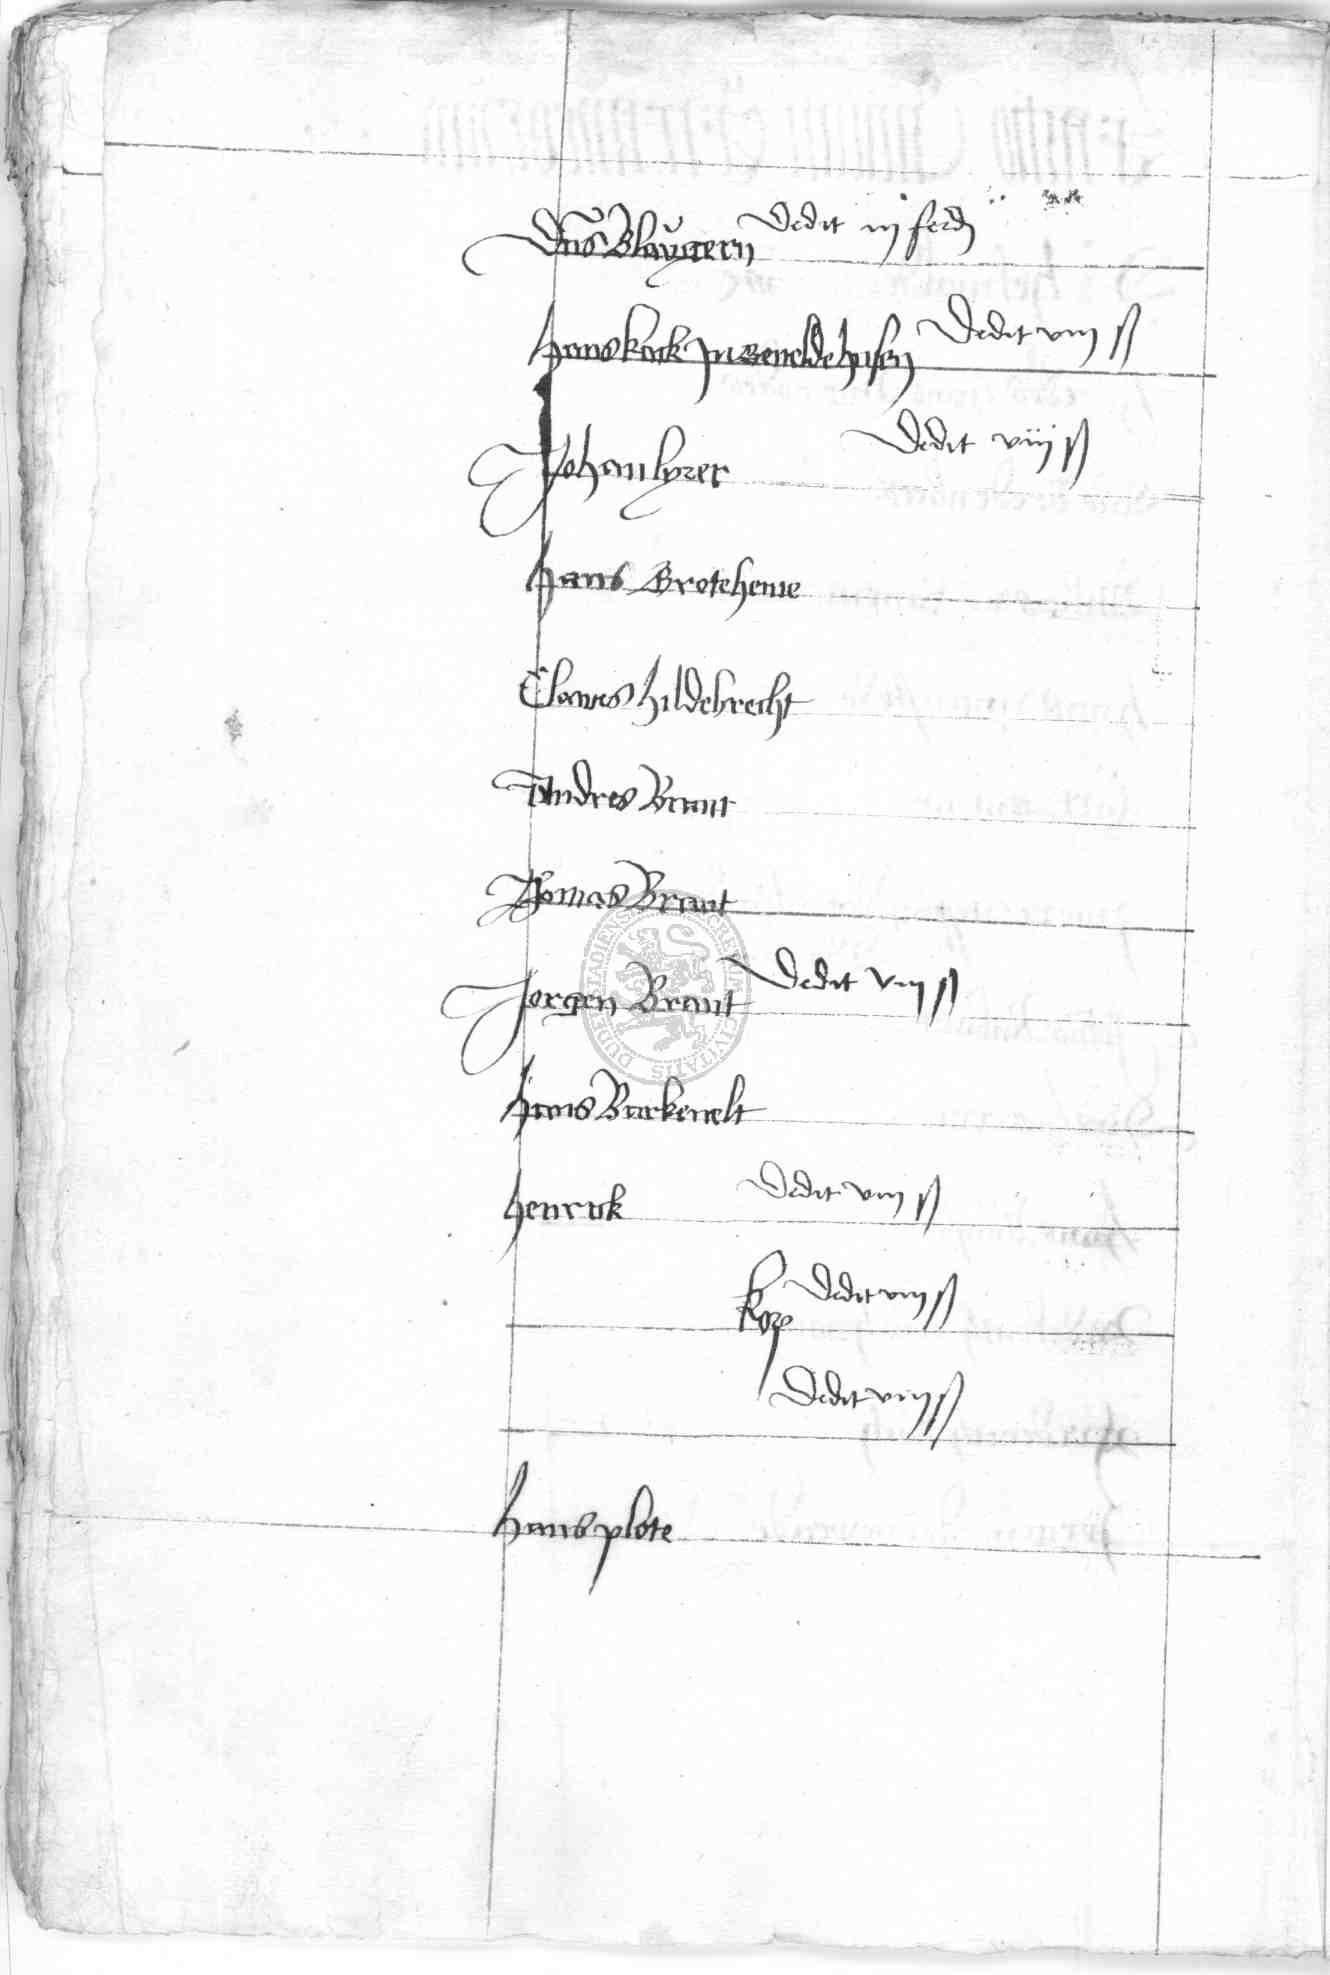 Dns Blauyrern Dedit iij ferd
Hans kok in Breneldehusen Dedit viij ß
Johan lyzer Dedit viij ß
Hans Grotehenne
Clawes hildebrecht
Andres Brant
Thomas Brant
Jorgen Brant Dedit viij ß
Hans Burkenelt
Henrick Dedit viij ß
kop Dedit viij ß
Dedit viij ß
Hans plote
SECRETUM CIVITATIS